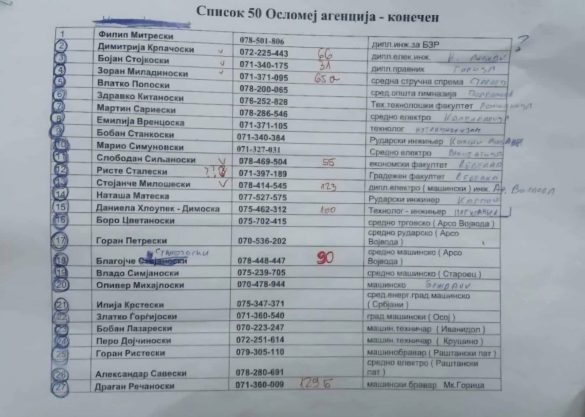 Список 50 Осломеј агенција - конечен
1 Филип Митрески 078-501-806 дипл.инж.за БЗР ?
2 Димитрија Крпачоски 072-225-443 66 дипл.елек.инж.
3 Бојан Стојкоски 071-340-175 31 дипл.правник
4 Зоран Миладиноски 071-371-095 65а средна стручна спрема
5 Влатко Попоски 078-200-065 сред општа гимназија
6 Здравко Китаноски 076-252-828 Тех.технолошки факултет
7 Мартин Сариески 078-286-546 средно електро
8 Емилија Вренцоска 071-371-105 технолог
9 Бобан Станкоски 071-340-384 Рударски инжињер
10 Марио Симуновски 071-327-031 Средно електро
11 Слободан Силјаноски 078-469-504 55 економски факултет
12 Ристе Сталески ?! 071-397-189 Градежен факултет
13 Стојанче Милошески 078-414-545 123 дипл.електро ( машински ) инж.
14 Наташа Матеска 077-527-575 Рударски инжињер
15 Даниела Хлоупек - Димоска 075-462-312 100 Технолог - инжињер
16 Боро Цветаноски 075-702-415 средно трговско ( Арсо Војвода )
17 Горан Петрески 070-536-202 средно рударско ( Арсо Војвода )
18 Благојче 078-448-447 90 средно машинско ( Арсо Војвода )
19 Владо Симјаноски 075-239-705 средно машинско ( Староец )
20 Оливер Михајлоски 070-478-944 машинско
21 Илија Крстески 075-347-371 сред.енерг.град машинско ( Србјани )
22 Златко Ѓорѓиоски 071-360-540 град машински ( Осој )
23 Бобан Лазарески 070-223-247 машин.техничар ( Иванидол )
24 Перо Дојчиноски 072-251-614 машин.техничар ( Крушино )
25 Горан Ристески 079-305-110 машинобравар ( Раштански пат )
26 Александар Савески 078-280-691 средно електро ( Раштански пат )
27 Драган Речаноски 071-360-009 129Б машински бравар Мк.Горица